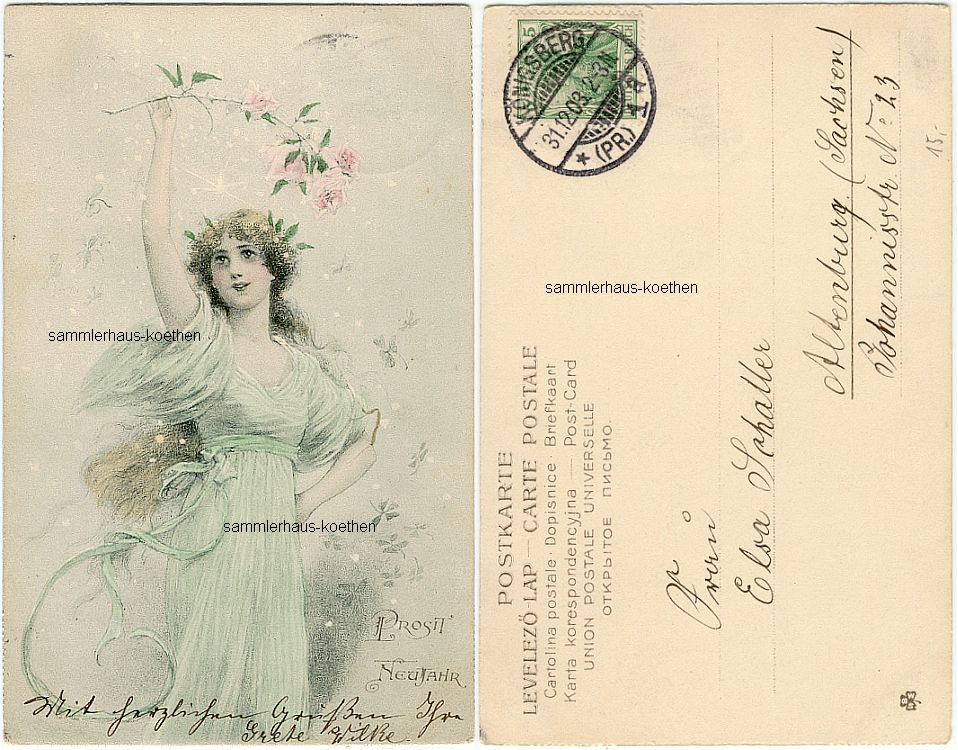 sammlerhaus-koethen
sammlerhaus-koethen
PROSIT
NEUJAHR
Mit herzlichen Grußen Ihre
Grete Wilke.
5
REICH
KÖNIGSBERG
31.12.03.2-3N
* (PR.) 1a
sammlerhaus-koethen
POSTKARTE
LEVELEZŐ-LAP — CARTE POSTALE
Cartolina postale · Dopisnice · Briefkaart
Karta korespondencyjna — Post-Card
UNION POSTALE UNIVERSELLE
ОТКРЫТОЕ ПИСЬМО.
Frau
Elsa Schaller
Altenburg. (Sachsen)
Johannisstr. No 23
15,-